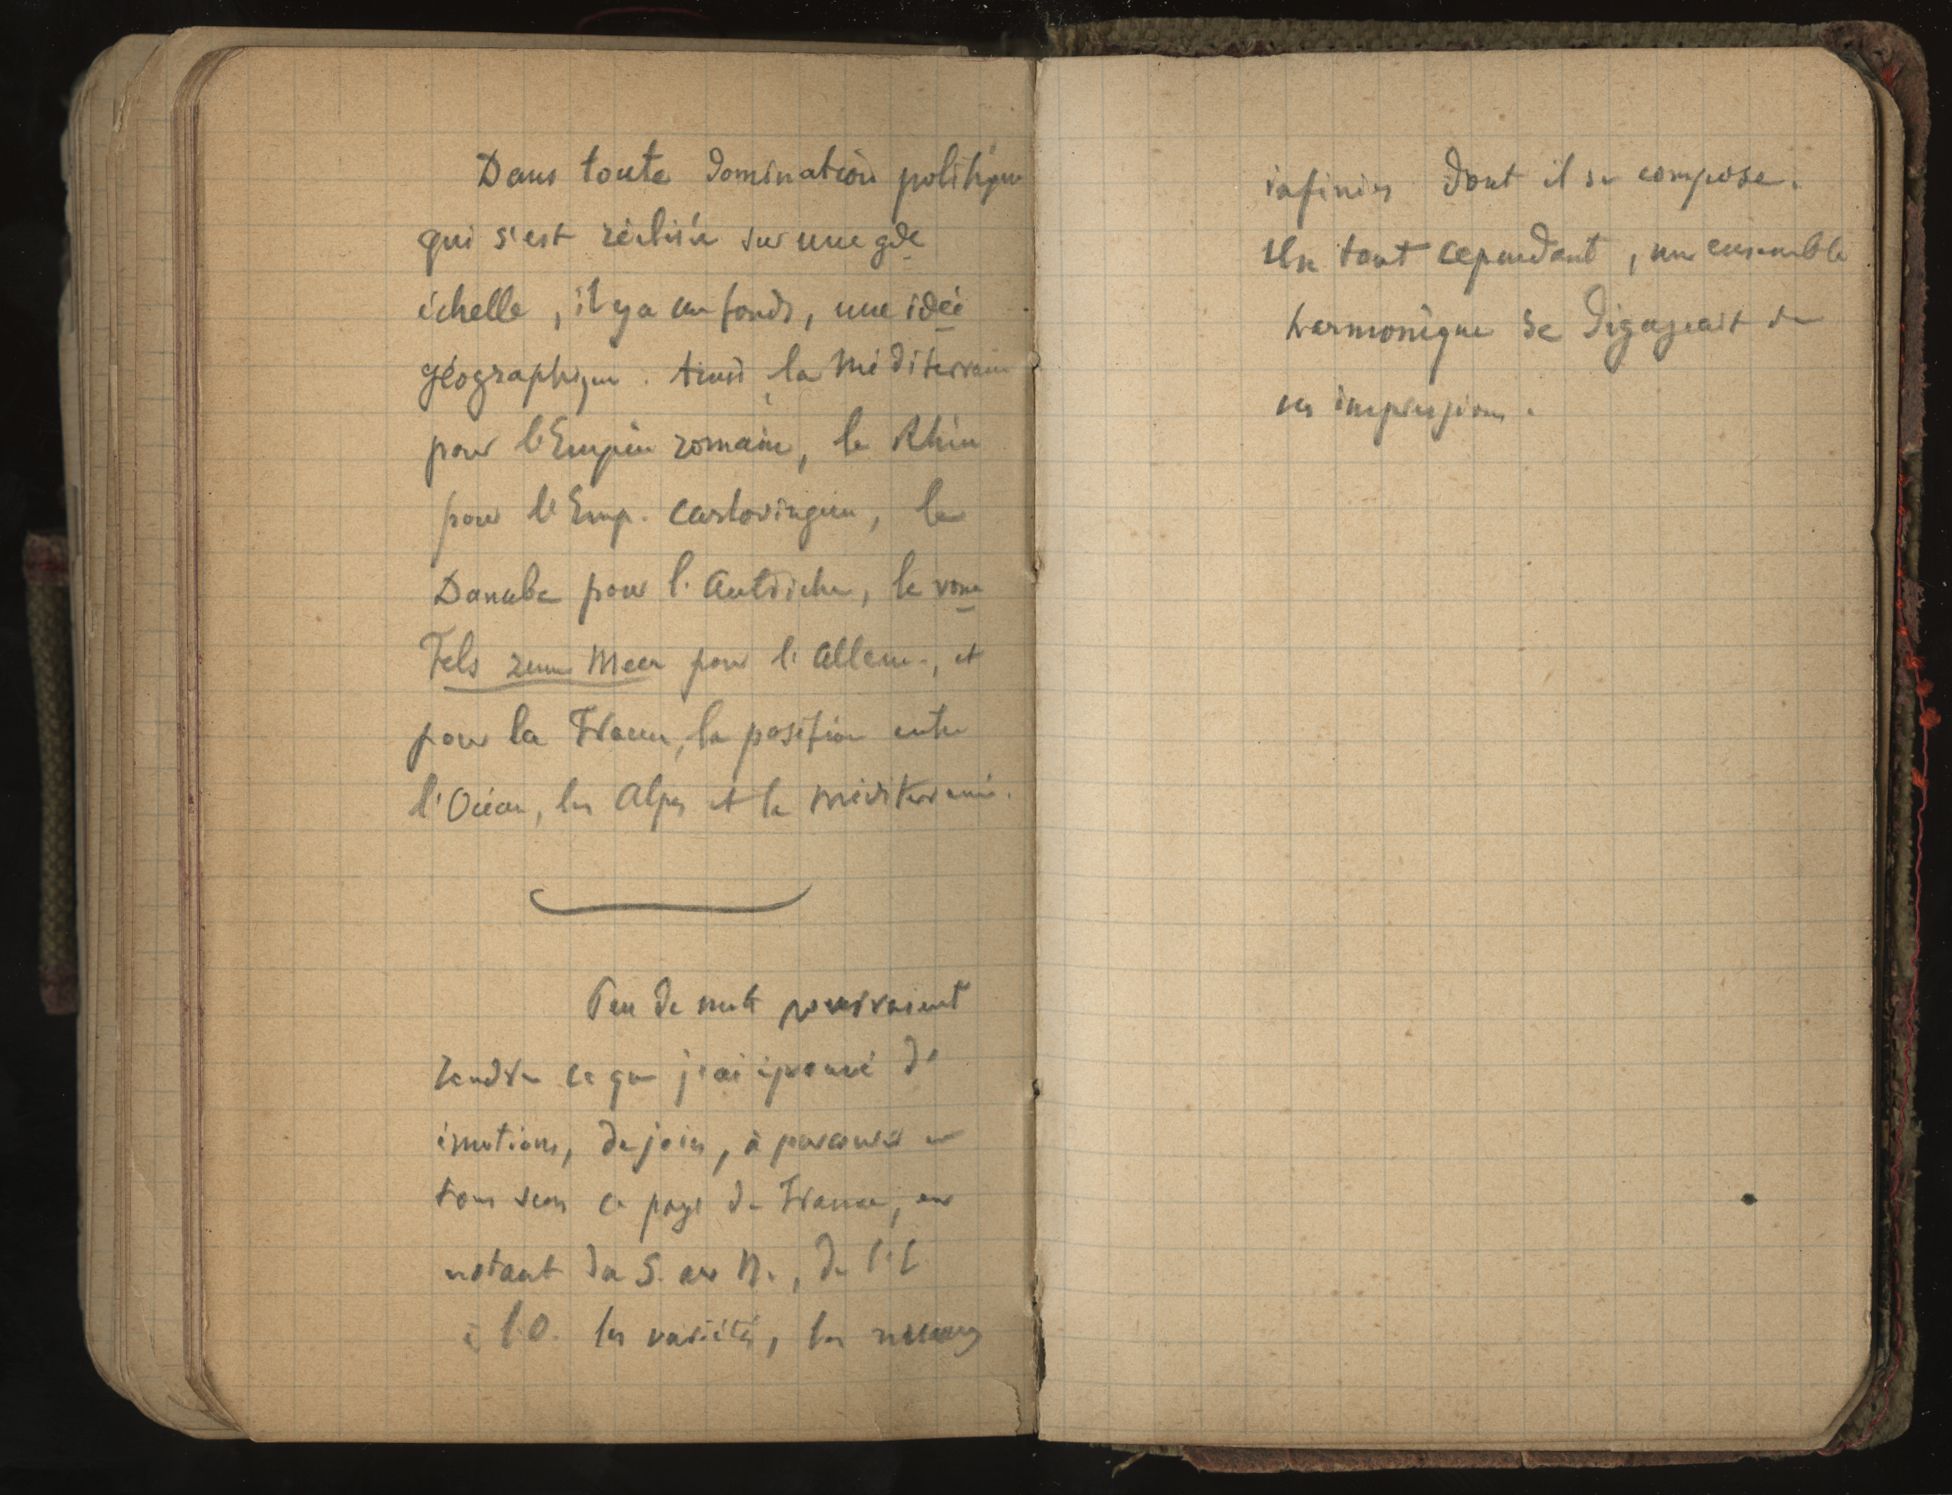 Dans toute domination politique
qui s'est réalisée sur une gde
échelle, il y a un fonds, une idée
géographique. Ainsi, la Méditerranée
pour l'Empire romain, le Rhin
pour l'Emp. carlovingien, le
Danube pour l'Autriche, le vom
Fels zum Meer pour l'Allem., et
pour la France, la position entre
l'Océan, les Alpes et la Méditerranée.
Peu de mots pourraient
rendre ce que j'ai éprouvé d'
émotions, de joies, à parcourir en
tous sens ce pays de France, en
notant du S. au N., de l'E
à l'O. les variétés, les nuances
infinies dont il se compose.
Un tout cependant, un ensemble
harmonique se dégageait de
ces impressions.